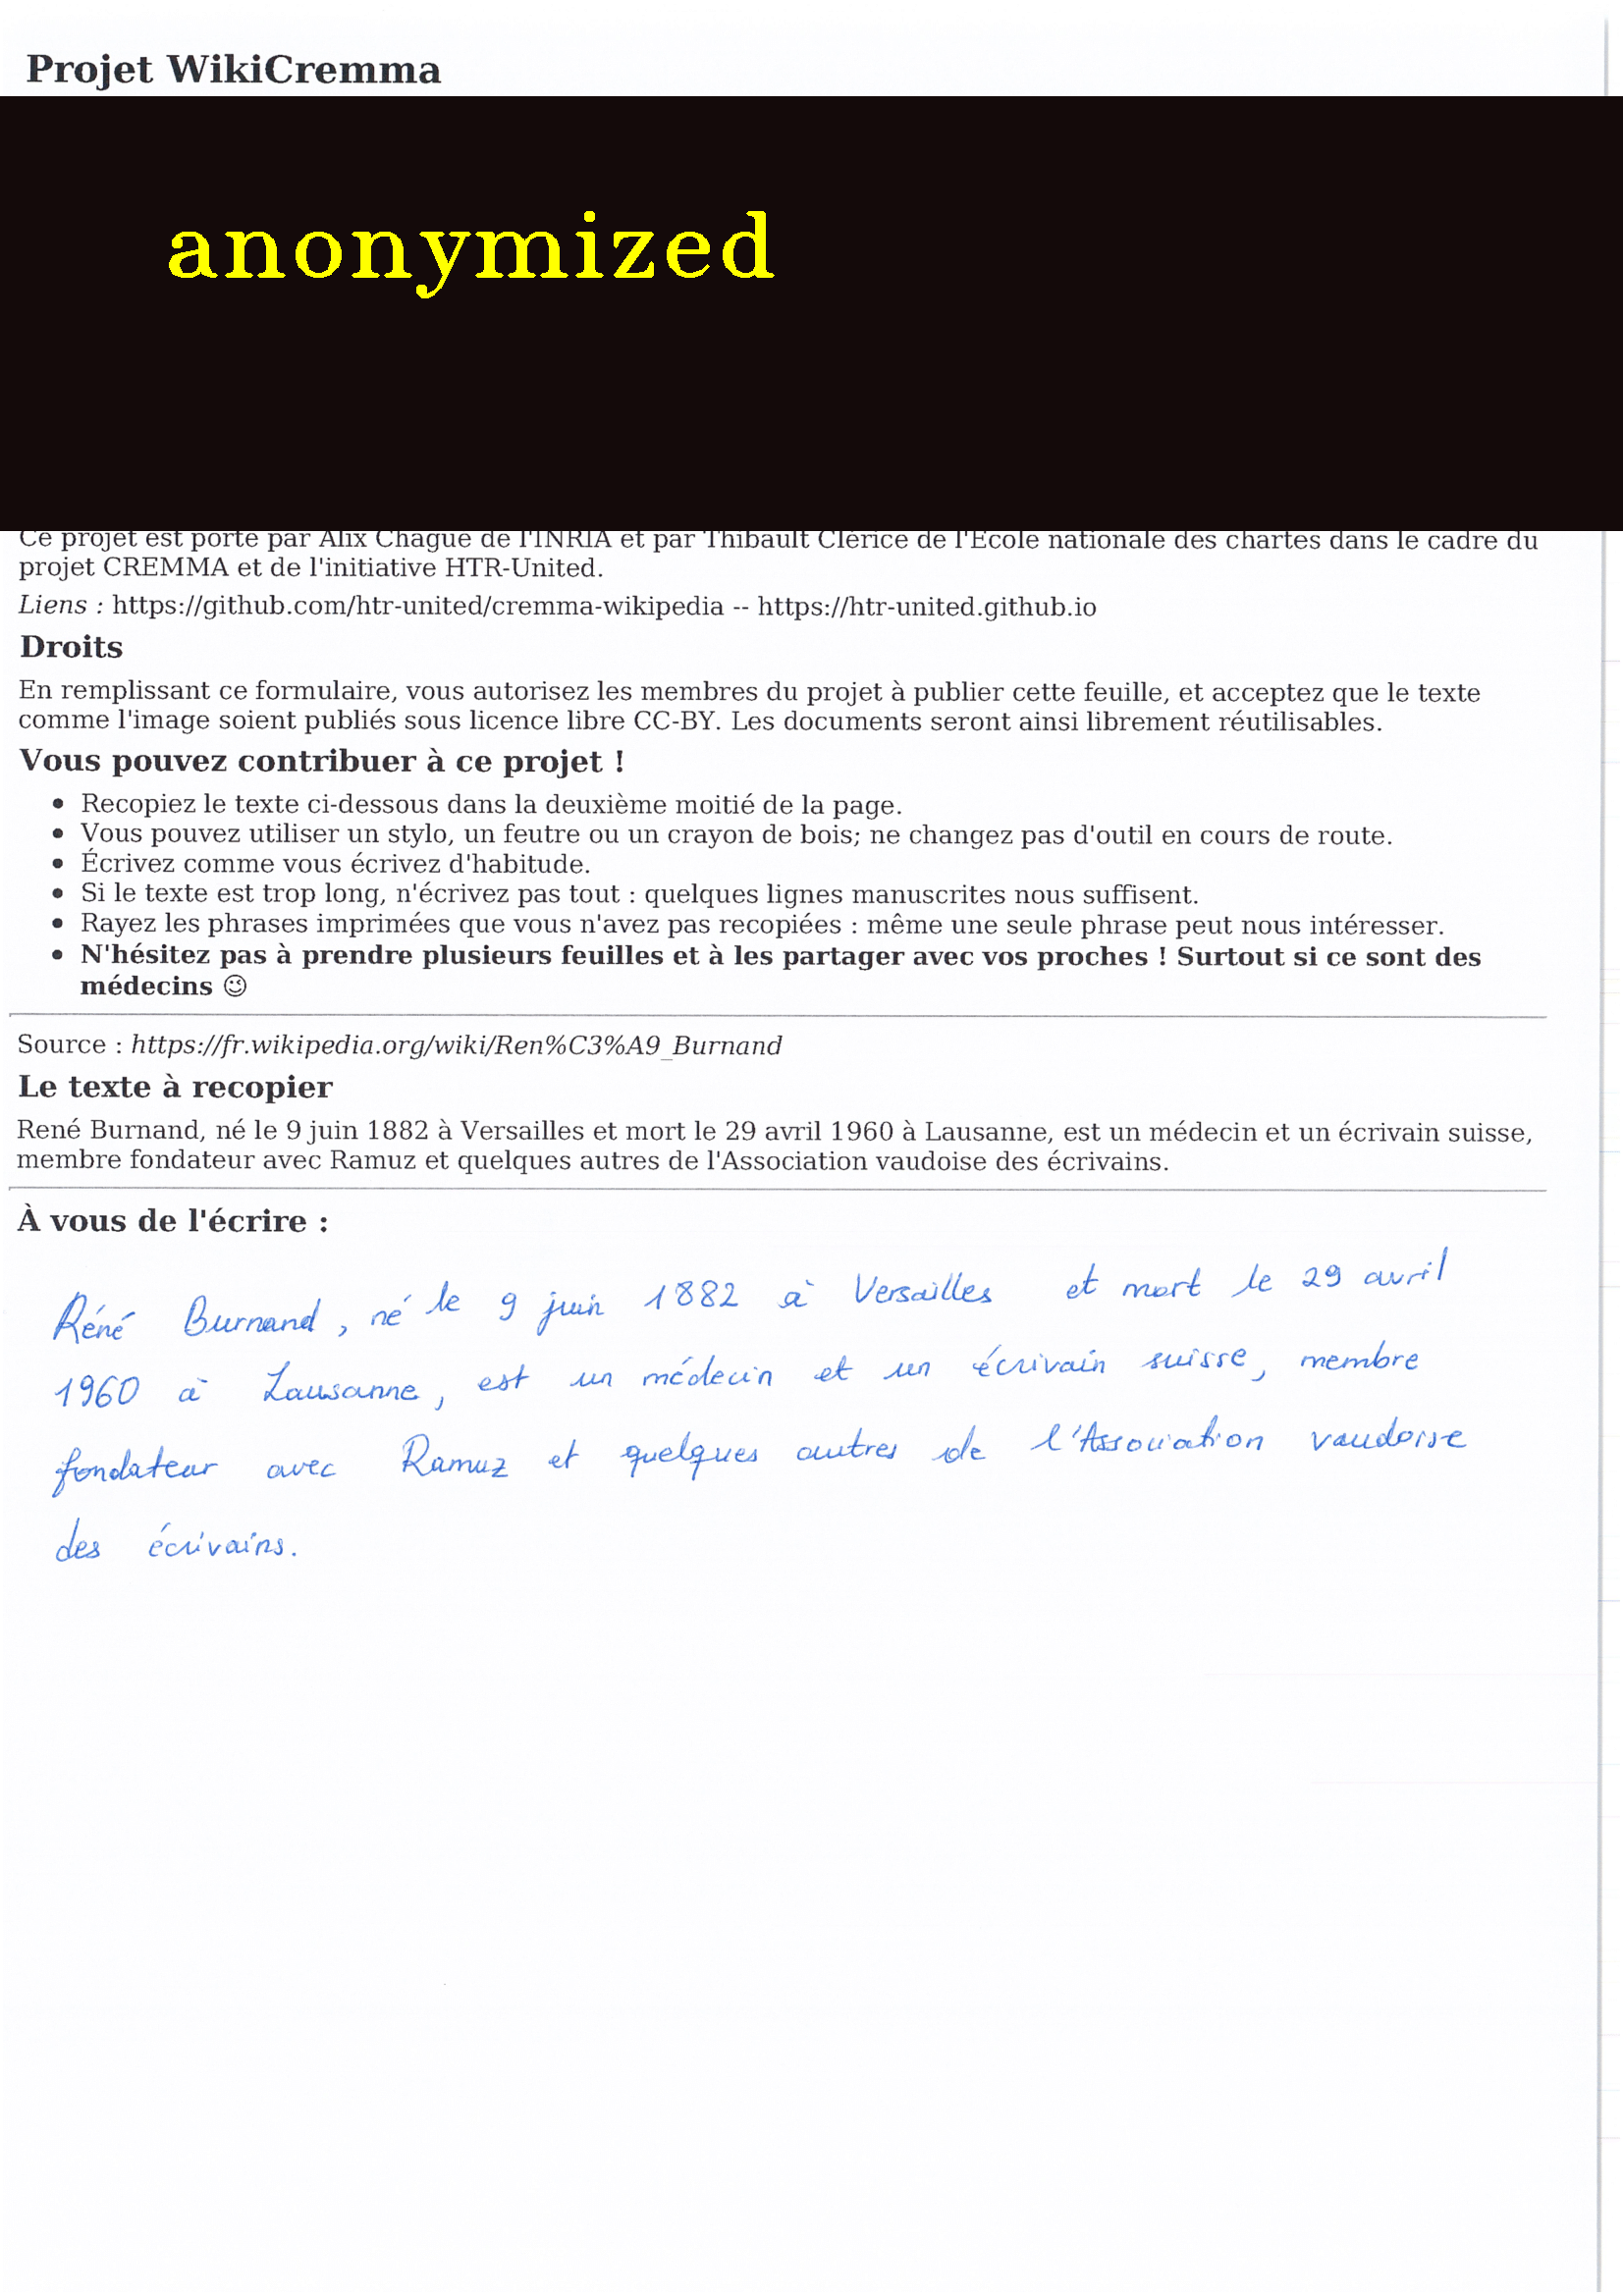 Projet WikiCremma
anonymized
Ce projet est porté par Alix Chagué de l'INRIA et par Thibault Clérice de l'École nationale des chartes dans le cadre du
projet CREMMA et de l'initiative HTR-United.
Liens : https://github.com/htr-united/cremma-wikipedia -- https://htr-united.github.io
Droits
En remplissant ce formulaire, vous autorisez les membres du projet à publier cette feuille, et acceptez que le texte
comme l'image soient publiés sous licence libre CC-BY. Les documents seront ainsi librement réutilisables.
Vous pouvez contribuer à ce projet !
• Recopiez le texte ci-dessous dans la deuxième moitié de la page.
• Vous pouvez utiliser un stylo, un feutre ou un crayon de bois; ne changez pas d'outil en cours de route.
• Écrivez comme vous écrivez d'habitude.
• Si le texte est trop long, n'écrivez pas tout : quelques lignes manuscrites nous suffisent.
• Rayez les phrases imprimées que vous n'avez pas recopiées : même une seule phrase peut nous intéresser.
• N'hésitez pas à prendre plusieurs feuilles et à les partager avec vos proches ! Surtout si ce sont des
médecins ☺
Source : https://fr.wikipedia.org/wiki/Ren%C3%A9_Burnand
Le texte à recopier
René Burnand, né le 9 juin 1882 à Versailles et mort le 29 avril 1960 à Lausanne, est un médecin et un écrivain suisse,
membre fondateur avec Ramuz et quelques autres de l'Association vaudoise des écrivains.
À vous de l'écrire :
Réné Burnand, né le 9 juin 1882 à Versailles et mort le 29 avril
1960 à Lausanne, est un médecin et un écrivain suisse, membre
fondateur avec Ramuz et quelques autres de l'Association vaudoise
des écrivains.